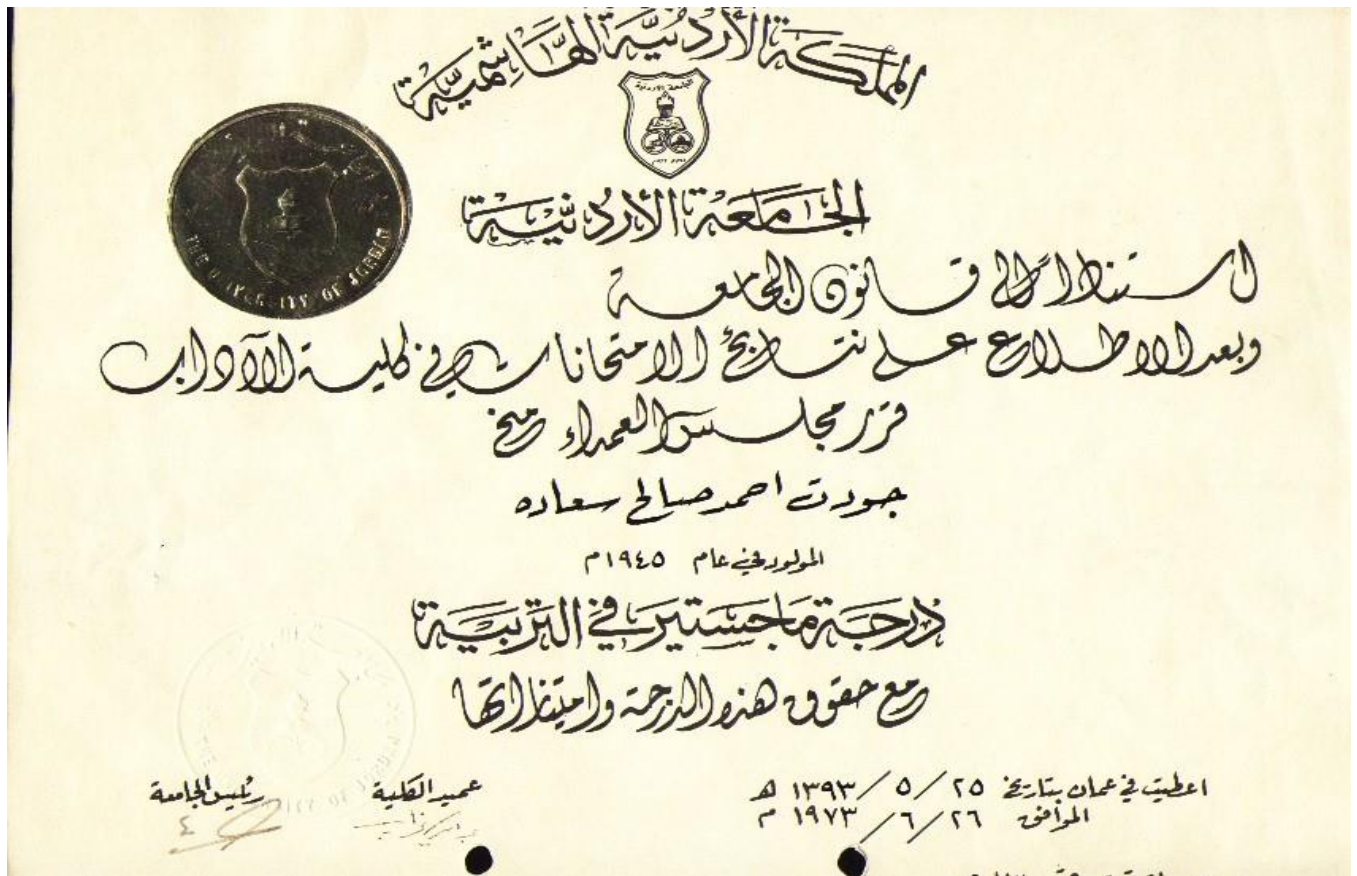 المملكة الأردنية الهاشمية
الجامعة الاردنية
THE UNIVERSITY OF JORDAN
الجامعة الأردنية
استناداً إلى قانون الجامعة
وبعد الاطلاع على نتائج الامتحانات في كلية الآداب
قرر مجلس العمداء منح
جودت احمد صالح سعاده
المولود في عام ١٩٤٥م
درجة ماجستير في التربية
مع حقوق هذه الدرجة وامتيازاتها
اعطيت في عمان بتاريخ ٢٥ / ٥ / ١٣٩٣ هـ
الموافق ٢٦ / ٦ / ١٩٧٣ م
عميد الكلية
رئيس الجامعة